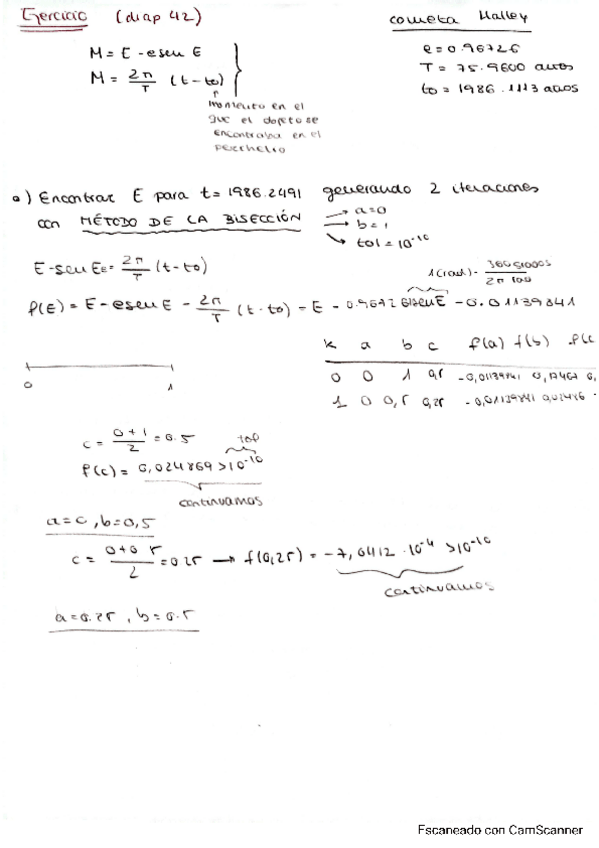 Ejercicio (diap 42)
cometa Halley
M = E - e sen E
M = 2π/T (t - to)
momento en el
que el objeto se
encontraba en el
perihelio
e = 0.96726
T = 75.9600 años
to = 1986.1113 años
a) Encontrar E para t = 1986.2491 generando 2 iteraciones
con MÉTODO DE LA BISECCIÓN → a = 0
→ b = 1
→ tol = 10^-10
2π/T (t - to)
f(E) = E - e sen E - 2π/T (t - to) = E - - 0.01139841
k a b c f(a) f(b) f(c
0 0 1 0,5 -0,01139841
1 0 0,5 0,25 -0,01139841 0,02486
0 1
c = 0+1/2 = 0.5
tol
f(c) = 0,024869 > 10^-10
continuamos
a = c, b = 0,5
c = 0+0.5/2 = 0.25 → f(0,25) = -7, · 10^-4 > 10^-10
continuamos
a = 0.25, b = 0.5
Escaneado con CamScanner